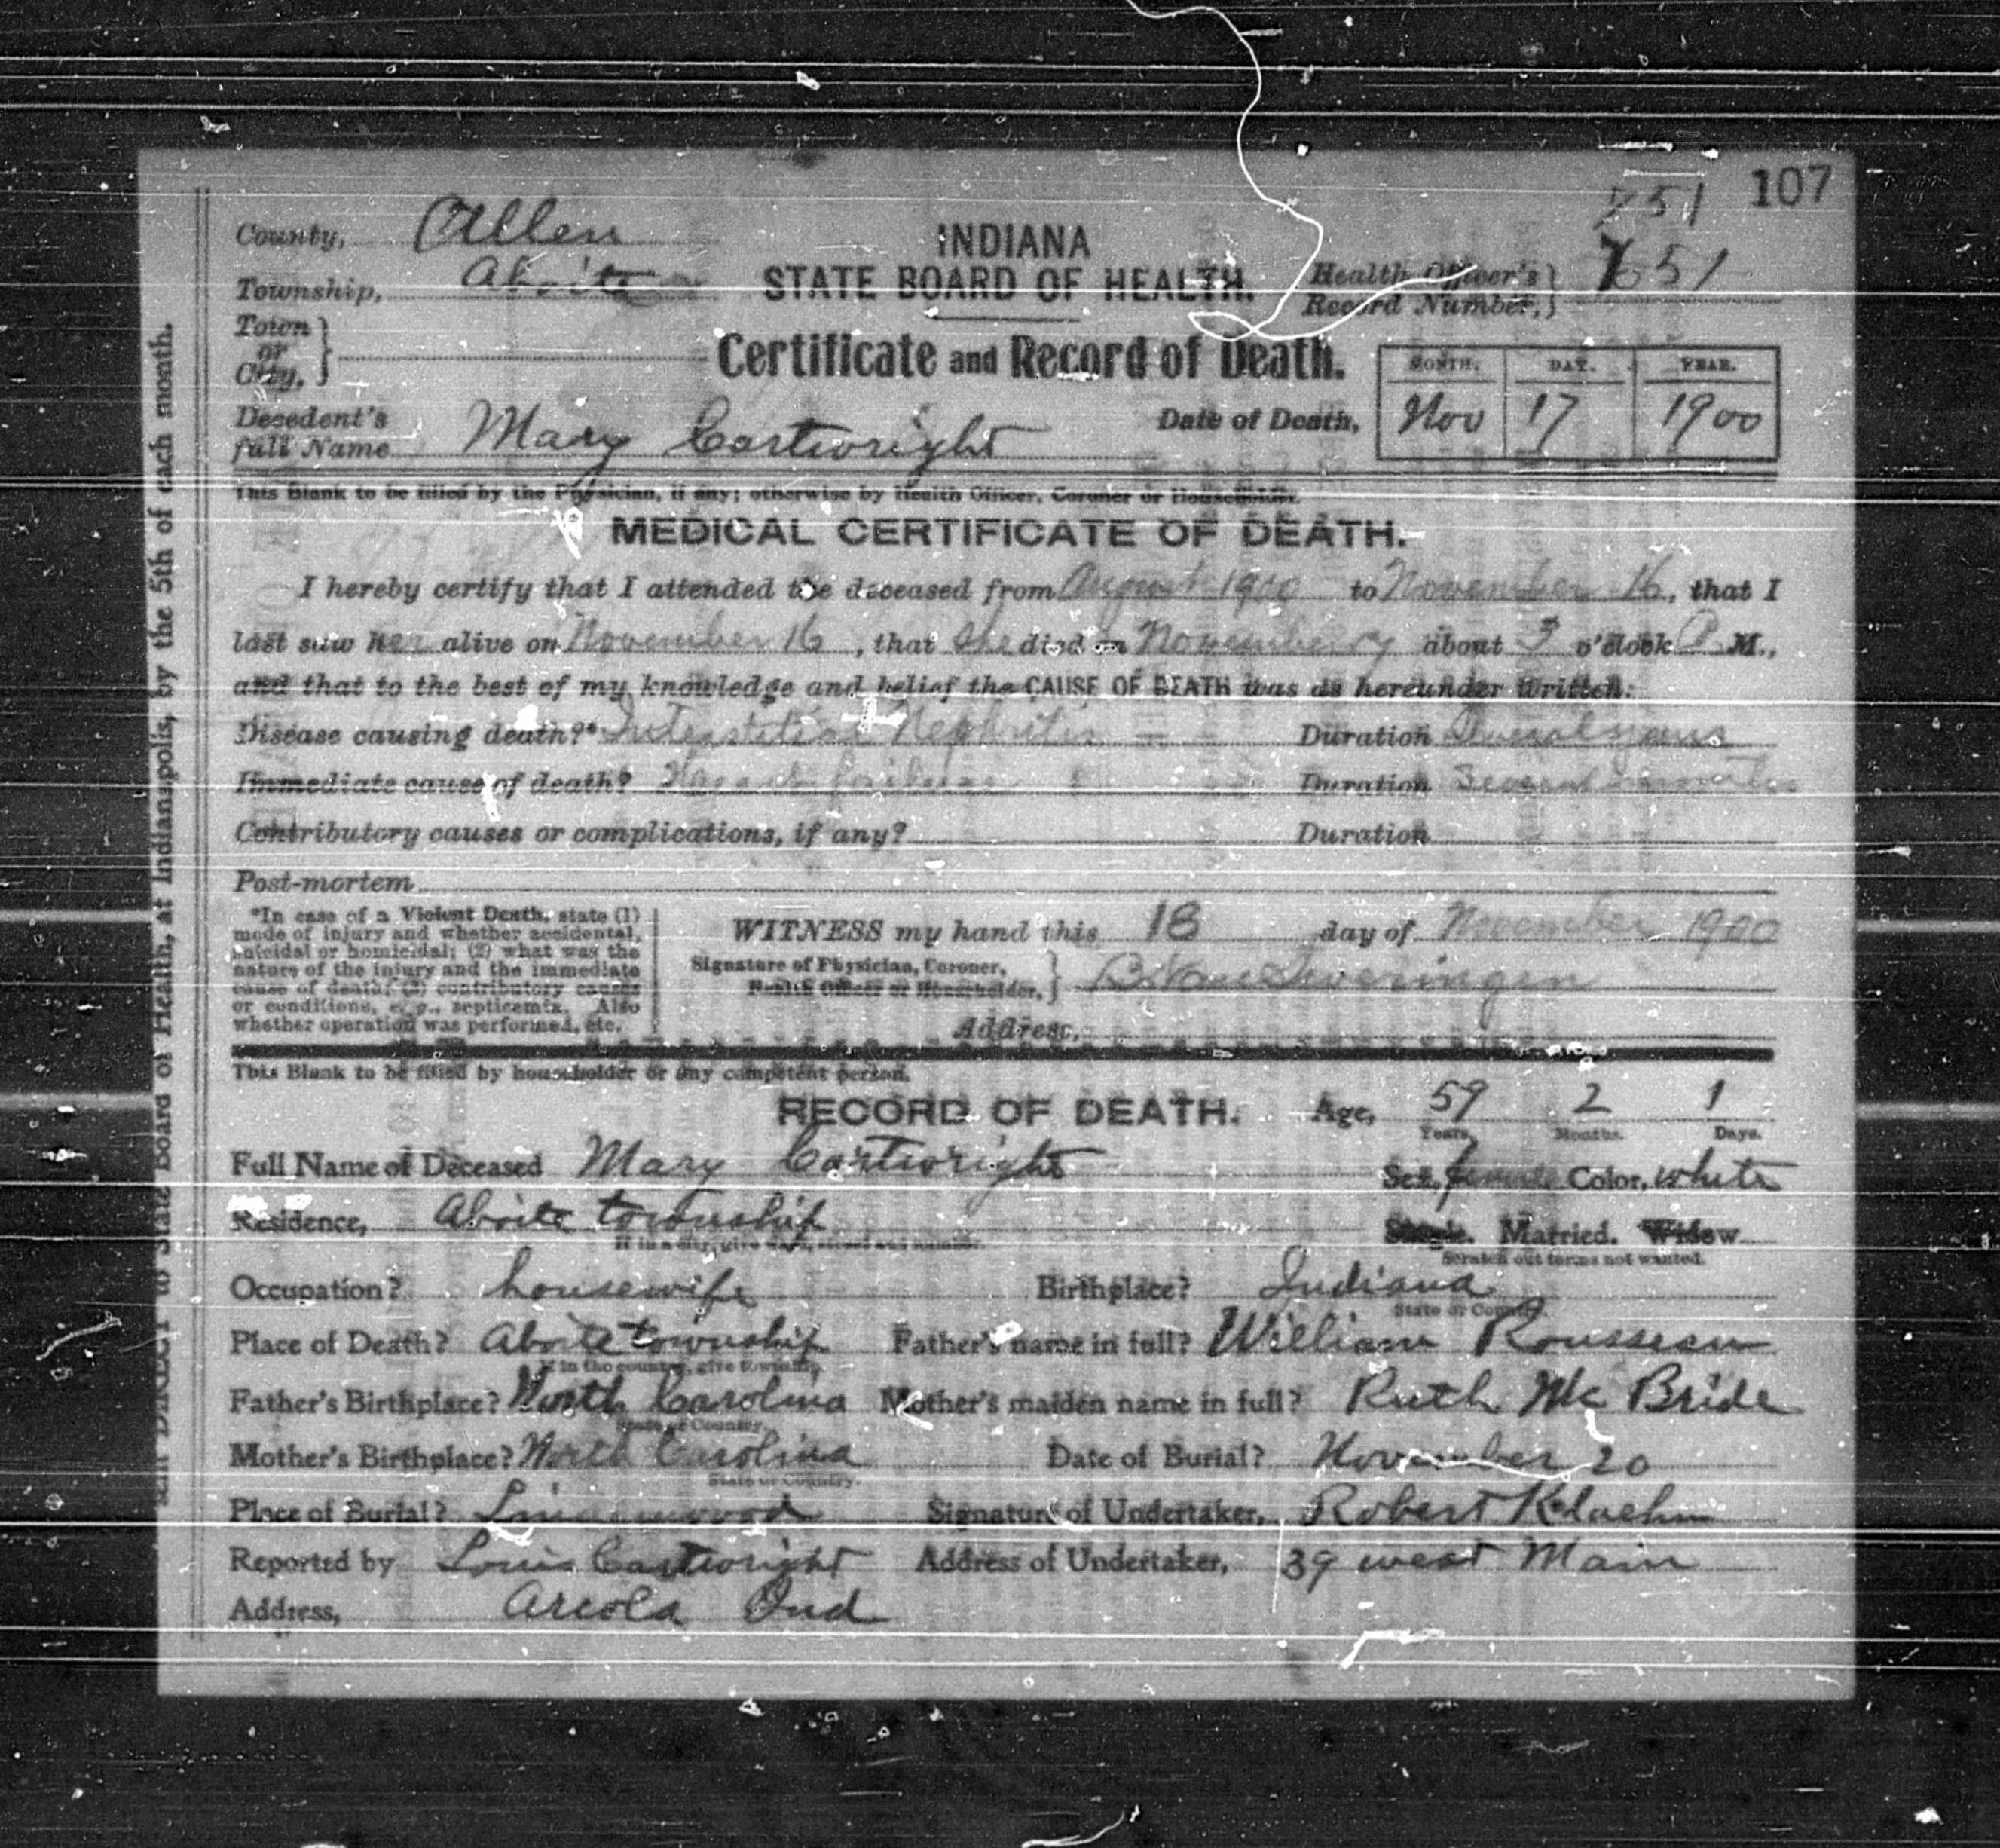 107
751
County, Allen
INDIANA
Township, Aboite
STATE BOARD OF HEALTH.
Health Officer's Record Number, 751
Town or City,
Certificate and Record of Death.
MONTH. DAY. YEAR.
Decedent's full Name Mary Cartwright Date of Death, Nov 17 1900
This Blank to be filled by the Physician, if any; otherwise by Health Officer, Coroner or Householder.
MEDICAL CERTIFICATE OF DEATH.
I hereby certify that I attended the deceased from August 1900 to November 16, that I
last saw her alive on November 16, that she died on November 17 about 3 o'clock P. M.,
and that to the best of my knowledge and belief the CAUSE OF DEATH was as hereunder written:
Disease causing death?* Interstitial Nephritis Duration Several years
Immediate cause of death? Heart failure Duration Several
Contributory causes or complications, if any? Duration
Post-mortem
*In case of a Violent Death, state (1)
mode of injury and whether accidental,
suicidal or homicidal; (2) what was the
nature of the injury and the immediate
cause of death; (3) contributory causes
or conditions, e. g., septicemia. Also
whether operation was performed, etc.
WITNESS my hand this 18 day of November 1900
Signature of Physician, Coroner,
Health Officer or Householder, B. Van Sweringen
Address,
This Blank to be filled by householder or any competent person.
RECORD OF DEATH. Age, 59 2 1
Years. Months. Days.
Full Name of Deceased Mary Cartwright Sex, female Color, white
Residence, Aboite township Single. Married. Widow
If in a city, give ward, street and number. Scratch out terms not wanted.
Occupation? housewife Birthplace? Indiana
State or Country.
Place of Death? Aboite township Father's name in full? William Rousseau
If in the country, give township.
Father's Birthplace? North Carolina Mother's maiden name in full? Ruth Mc Bride
State or Country.
Mother's Birthplace? North Carolina Date of Burial? November 20
State or Country.
Place of Burial? Lindenwood Signature of Undertaker, Robert Klaehn
Reported by Louis Cartwright Address of Undertaker, 39 west Main
Address, Arcola Ind
DIRECT to State Board of Health, at Indianapolis, by the 5th of each month.